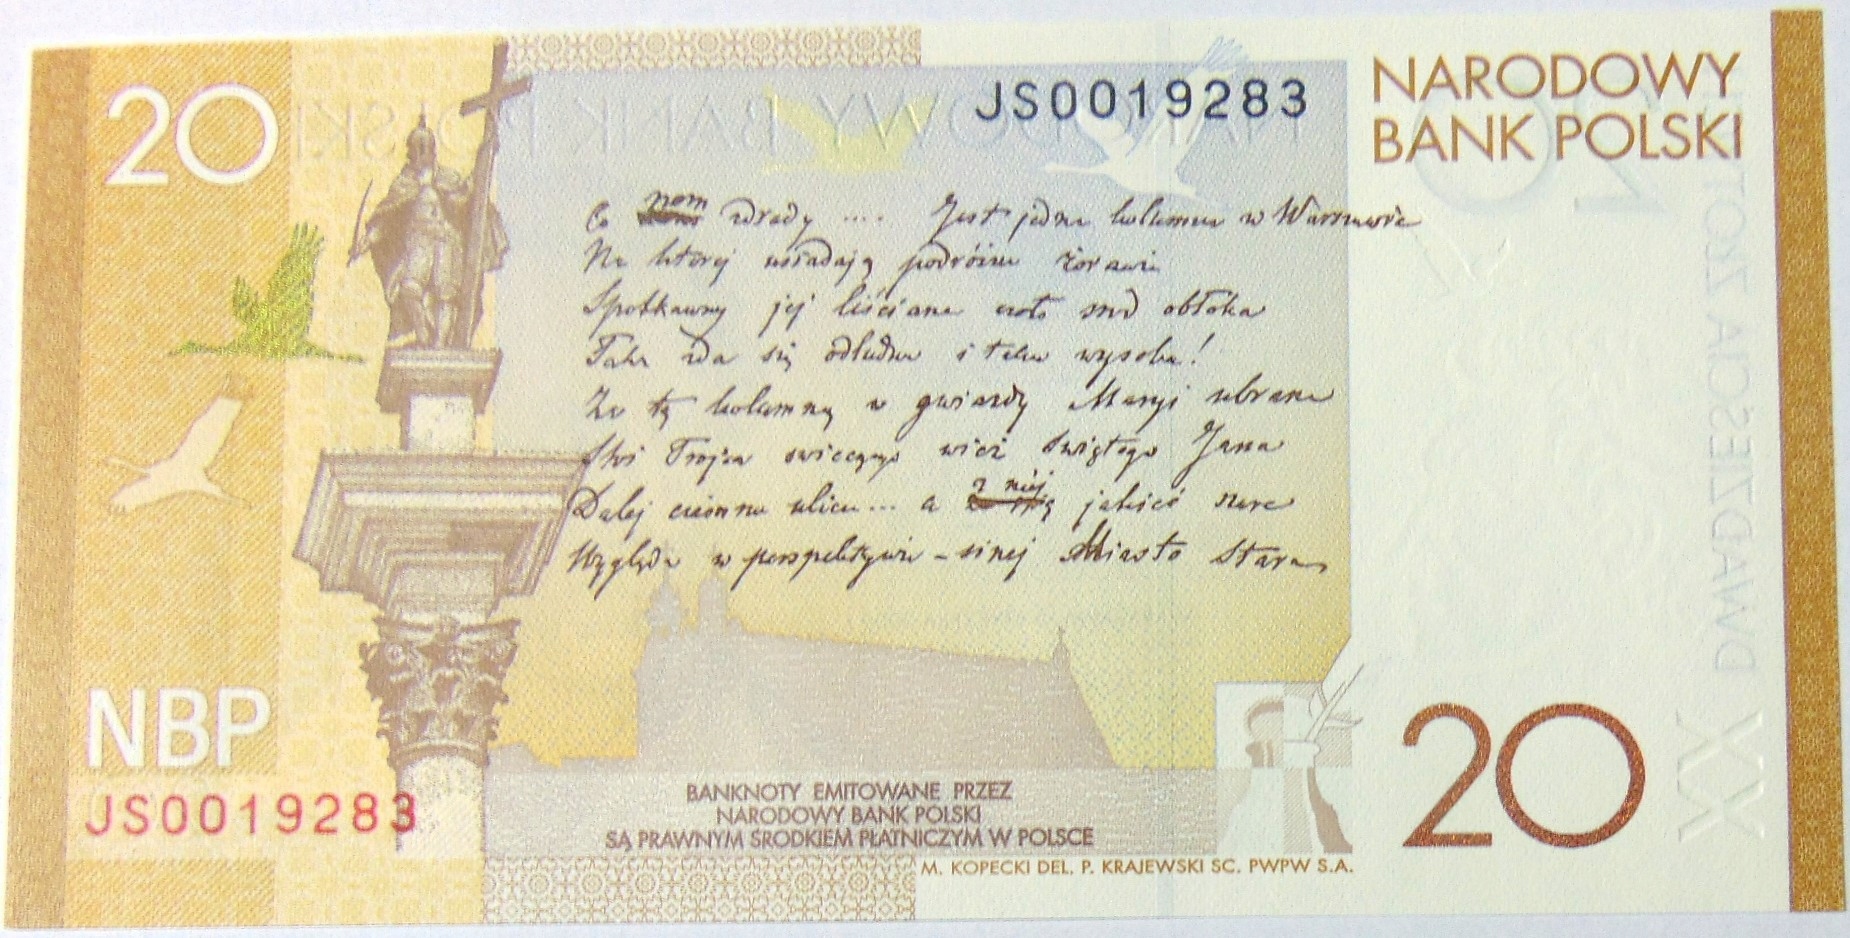 20
JS0019283
NARODOWY
BANK POLSKI
NARODOWY BANK POLSKI
Co nam zdrady .... Jest jedna kolumna w Warszawie
Na której usiadają podróżne żórawie
Spotkawszy jej liściane czoło śród obłoka
Taka zda się odludna i taka wysoka!
Za tą kolumną w gwiazdy Maryi ubrana
Stoi Trójca swiecącego wież świętego Jana
Dalej ciemna ulica... a z niéj jakieś szare
Wygląda w perspektywie - sinej Miasto Stare
DWADZIEŚCIA ZŁOTYCH
NBP
JS0019283
BANKNOTY EMITOWANE PRZEZ
NARODOWY BANK POLSKI
SĄ PRAWNYM ŚRODKIEM PŁATNICZYM W POLSCE
M. KOPECKI DEL. P. KRAJEWSKI SC. PWPW S.A.
20
XX